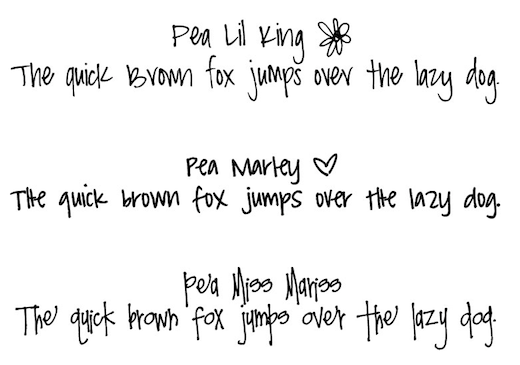 Pea Lil King
The quick Brown fox jumps over the lazy dog.
Pea Marley
The quick brown fox jumps over the lazy dog.
Pea Miss Mariss
The quick brown fox jumps over the lazy dog.